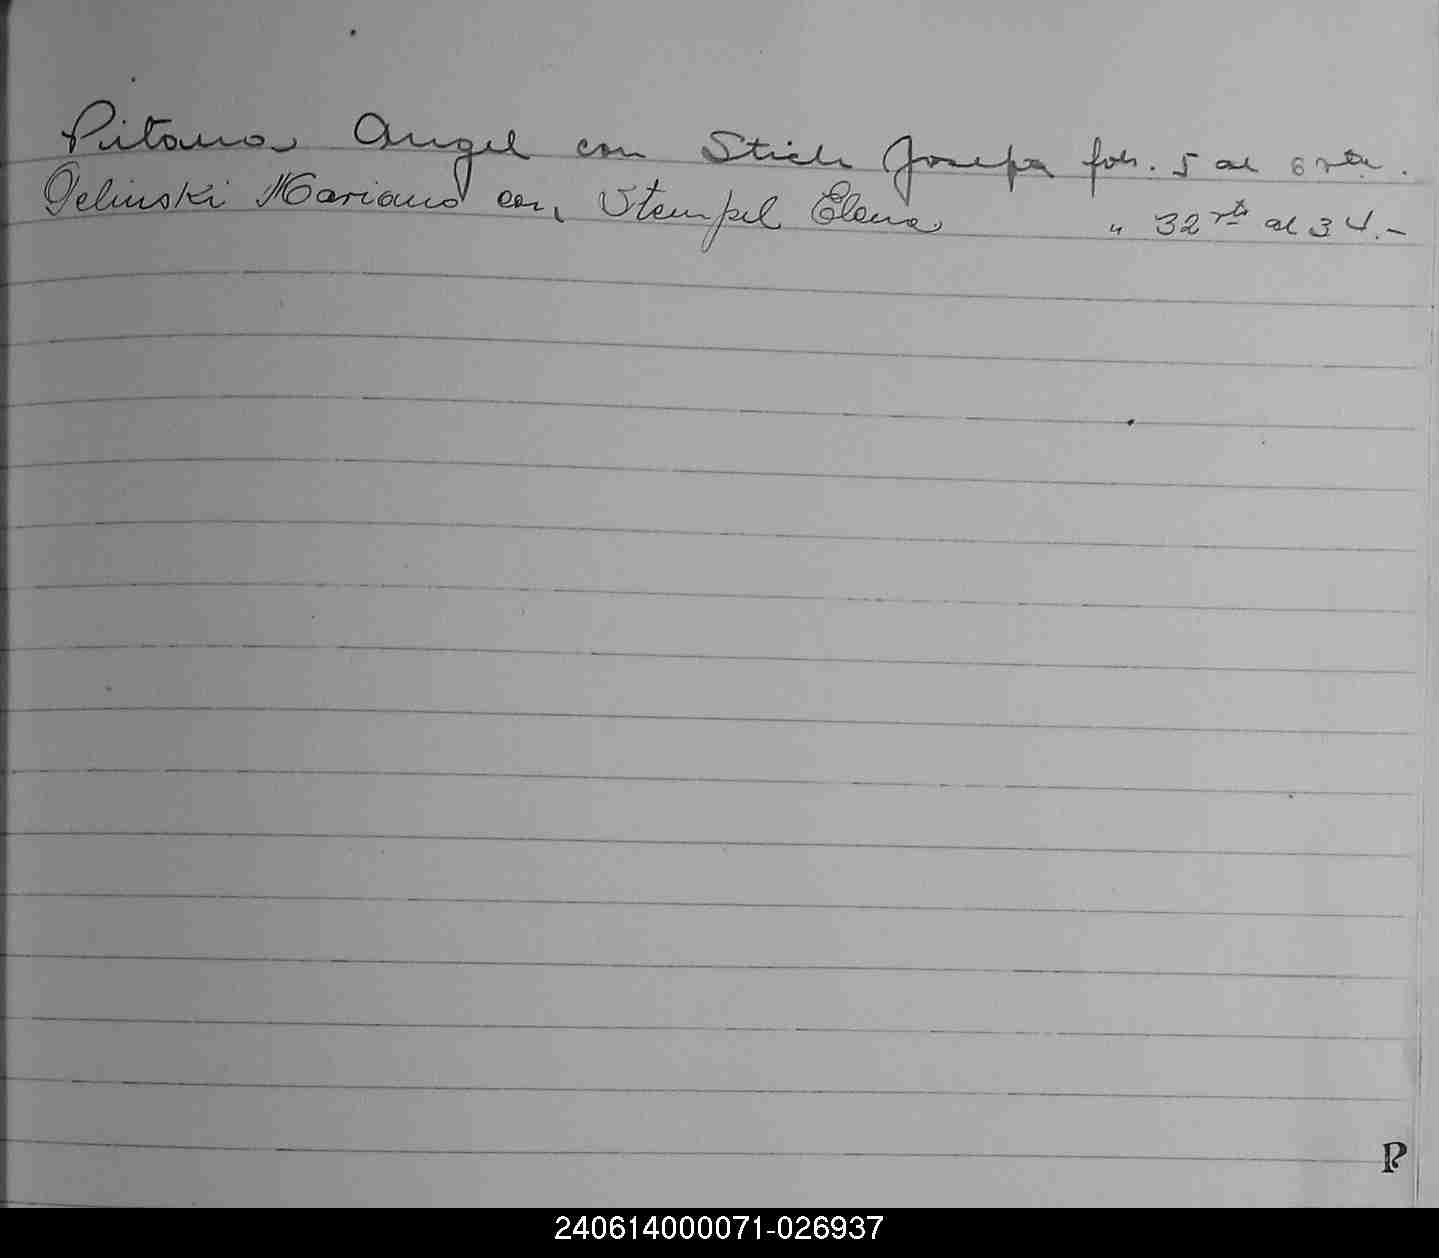 Pitana Angel con Stich Josefa fols. 5 al 6 vta.
Pelinski Mariano con Stempel Elena " 32 vta al 34.-
P
240614000071-026937